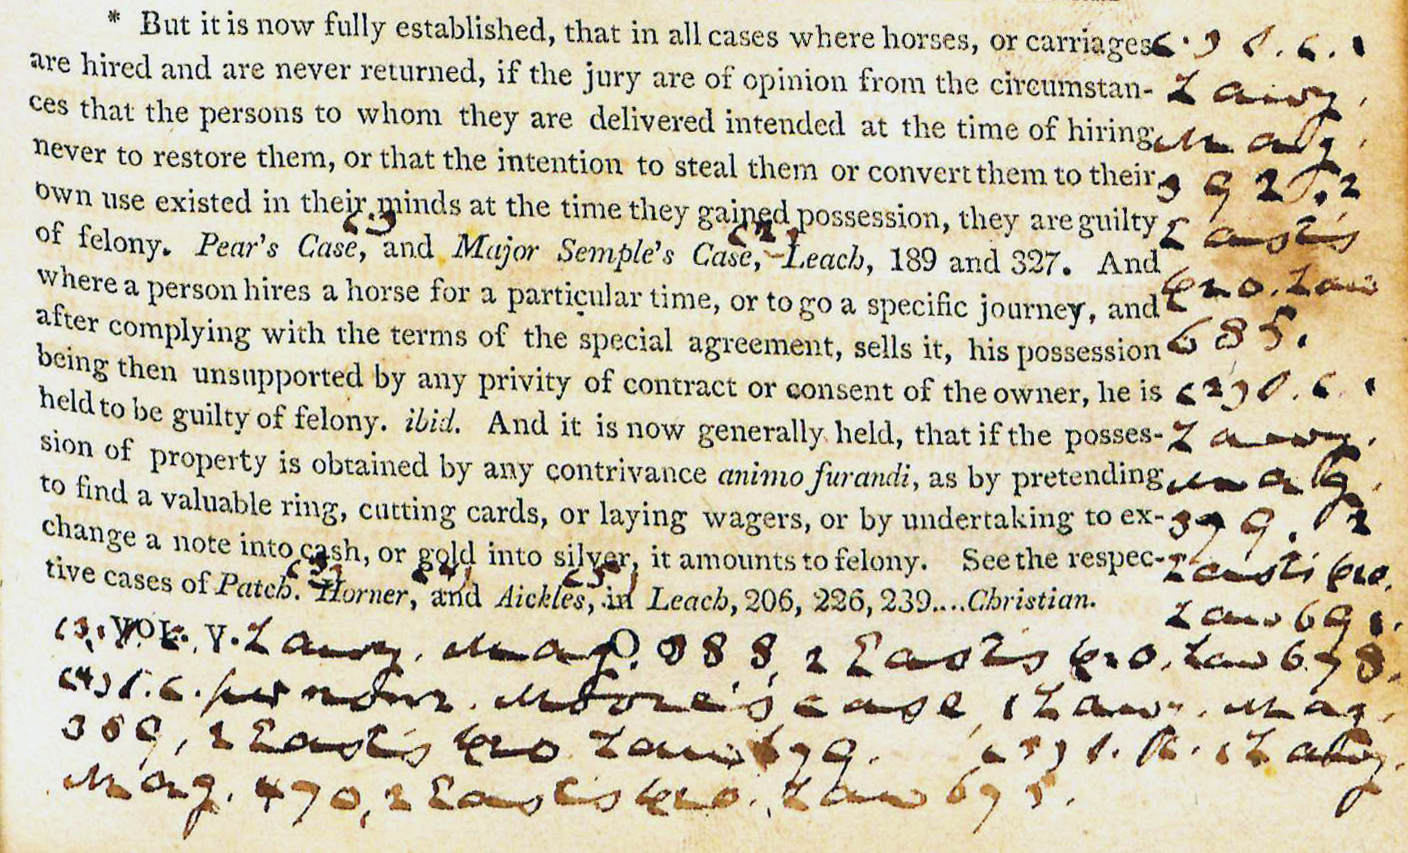 * But it is now fully established, that in all cases where horses, or carriages
are hired and are never returned, if the jury are of opinion from the circumstan-
ces that the persons to whom they are delivered intended at the time of hiring
never to restore them, or that the intention to steal them or convert them to their
own use existed in their minds at the time they gained possession, they are guilty
of felony. Pear's Case, and Major Semple's Case, Leach, 189 and 327. And
where a person hires a horse for a particular time, or to go a specific journey, and
after complying with the terms of the special agreement, sells it, his possession
being then unsupported by any privity of contract or consent of the owner, he is
held to be guilty of felony. ibid. And it is now generally held, that if the posses-
sion of property is obtained by any contrivance animo furandi, as by pretending
to find a valuable ring, cutting cards, or laying wagers, or by undertaking to ex-
change a note into cash, or gold into silver, it amounts to felony. See the respec-
tive cases of Patch. Horner, and Aickles, in Leach, 206, 226, 239....Christian.
VOL. V.
Mag.
East's
Cro. Law
685.
Mag.
East's Cro.
Law 691.
Mag. 388, 2 East's Cro. Law 678.
(4) S. C. per nom. Moore's case, 1 Law. Mag.
2 East's Cro. Law 679.
Mag. 470, 2 East's Cro. Law 675.